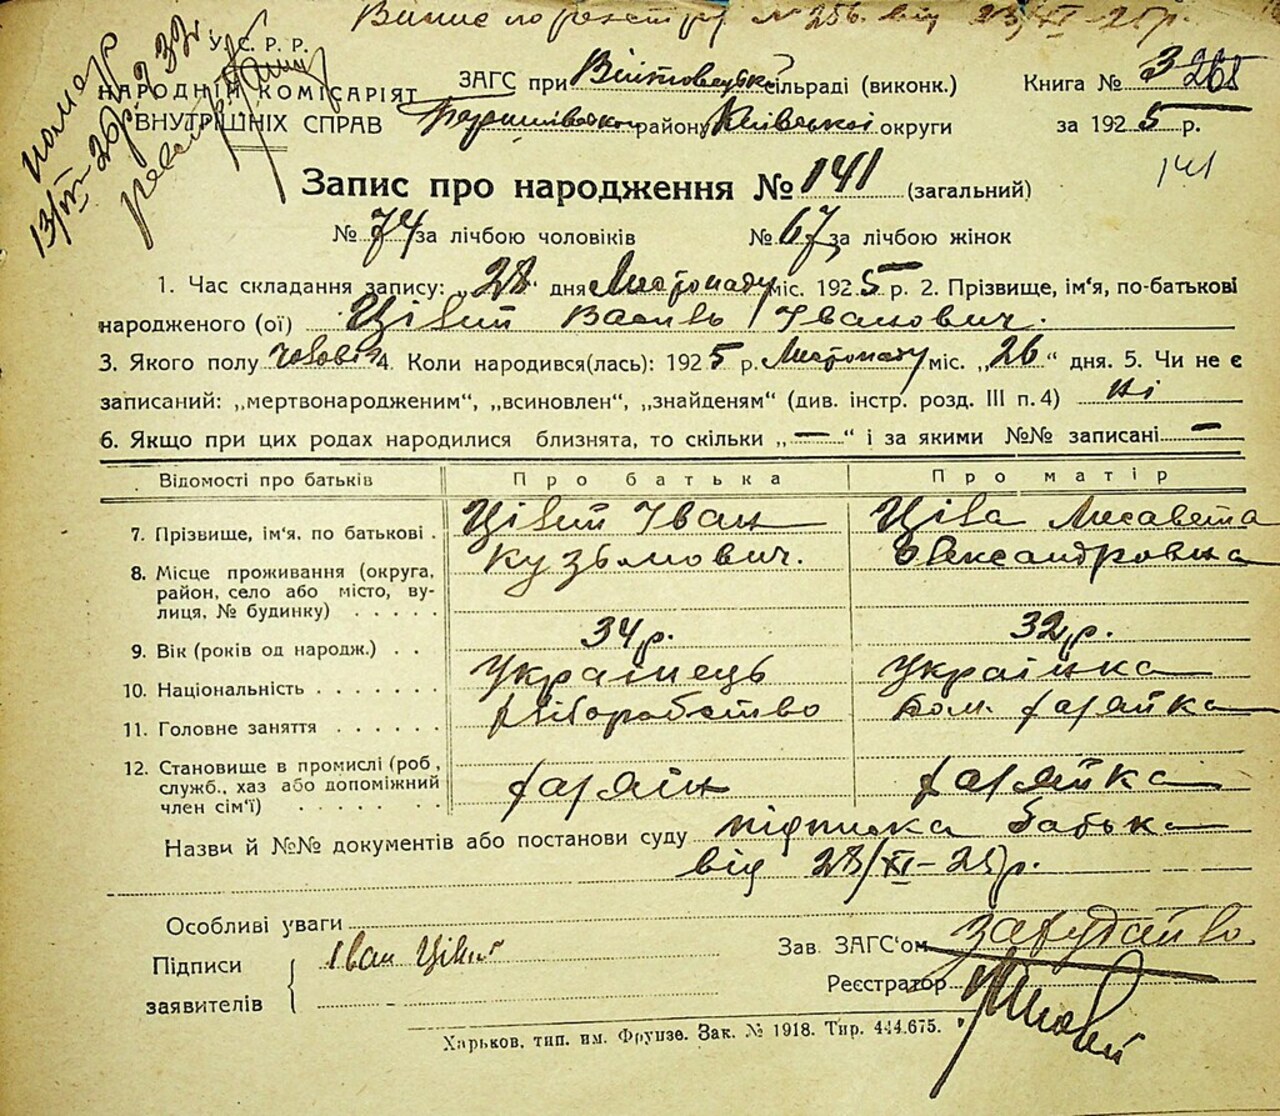 Випис по реєстру № 256 від 23/XI-25р.
помер
13/III-26р. № 233.
У. С. Р. Р.
НАРОДНІЙ КОМІСАРІЯТ
ВНУТРІШНІХ СПРАВ
ЗАГС при Війтовецькій сільраді (виконк.)
району Київської округи
Книга № 3
за 1925 р.
141
Запис про народження № 141 (загальний)
№ 74 за лічбою чоловіків № 67 за лічбою жінок
1. Час складання запису: „28" дня Листопаду міс. 1925 р. 2. Прізвище, ім'я, по-батькові
народженого (ої) Цівий Василь Іванович.
3. Якого полу чоловіч 4. Коли народився(лась): 1925 р. Листопаду міс. „26" дня. 5. Чи не є
записаний: „мертвонародженим", „всиновлен", „знайденям" (див. інстр. розд. III п. 4) ні
6. Якщо при цих родах народилися близнята, то скільки „—" і за якими №№ записані —
Відомості про батьків Про батька Про матір
7. Прізвище, ім'я, по батькові . Цівий Іван Кузьмович. Ціва Лисавета Олександровна
8. Місце проживання (округа,
район, село або місто, ву-
лиця, № будинку) . . . . .
9. Вік (років од народж.) . . 34 р. 32 р.
10. Національність . . . . . . . Українець Українка
11. Головне заняття . . . . . . хліборобство дом. хазяйка
12. Становище в промислі (роб.,
служб., хаз або допоміжний
член сім'ї) . . . . . хазяїн хазяйка
Назви й №№ документів або постанови суду підписка батька
від 28/XI-25р.
Особливі уваги
Підписи
заявителів
Іван Цівий
Зав. ЗАГС'ом
Реєстратор
Харьков, тип. им. Фрунзе. Зак. № 1918. Тир. 444.675.